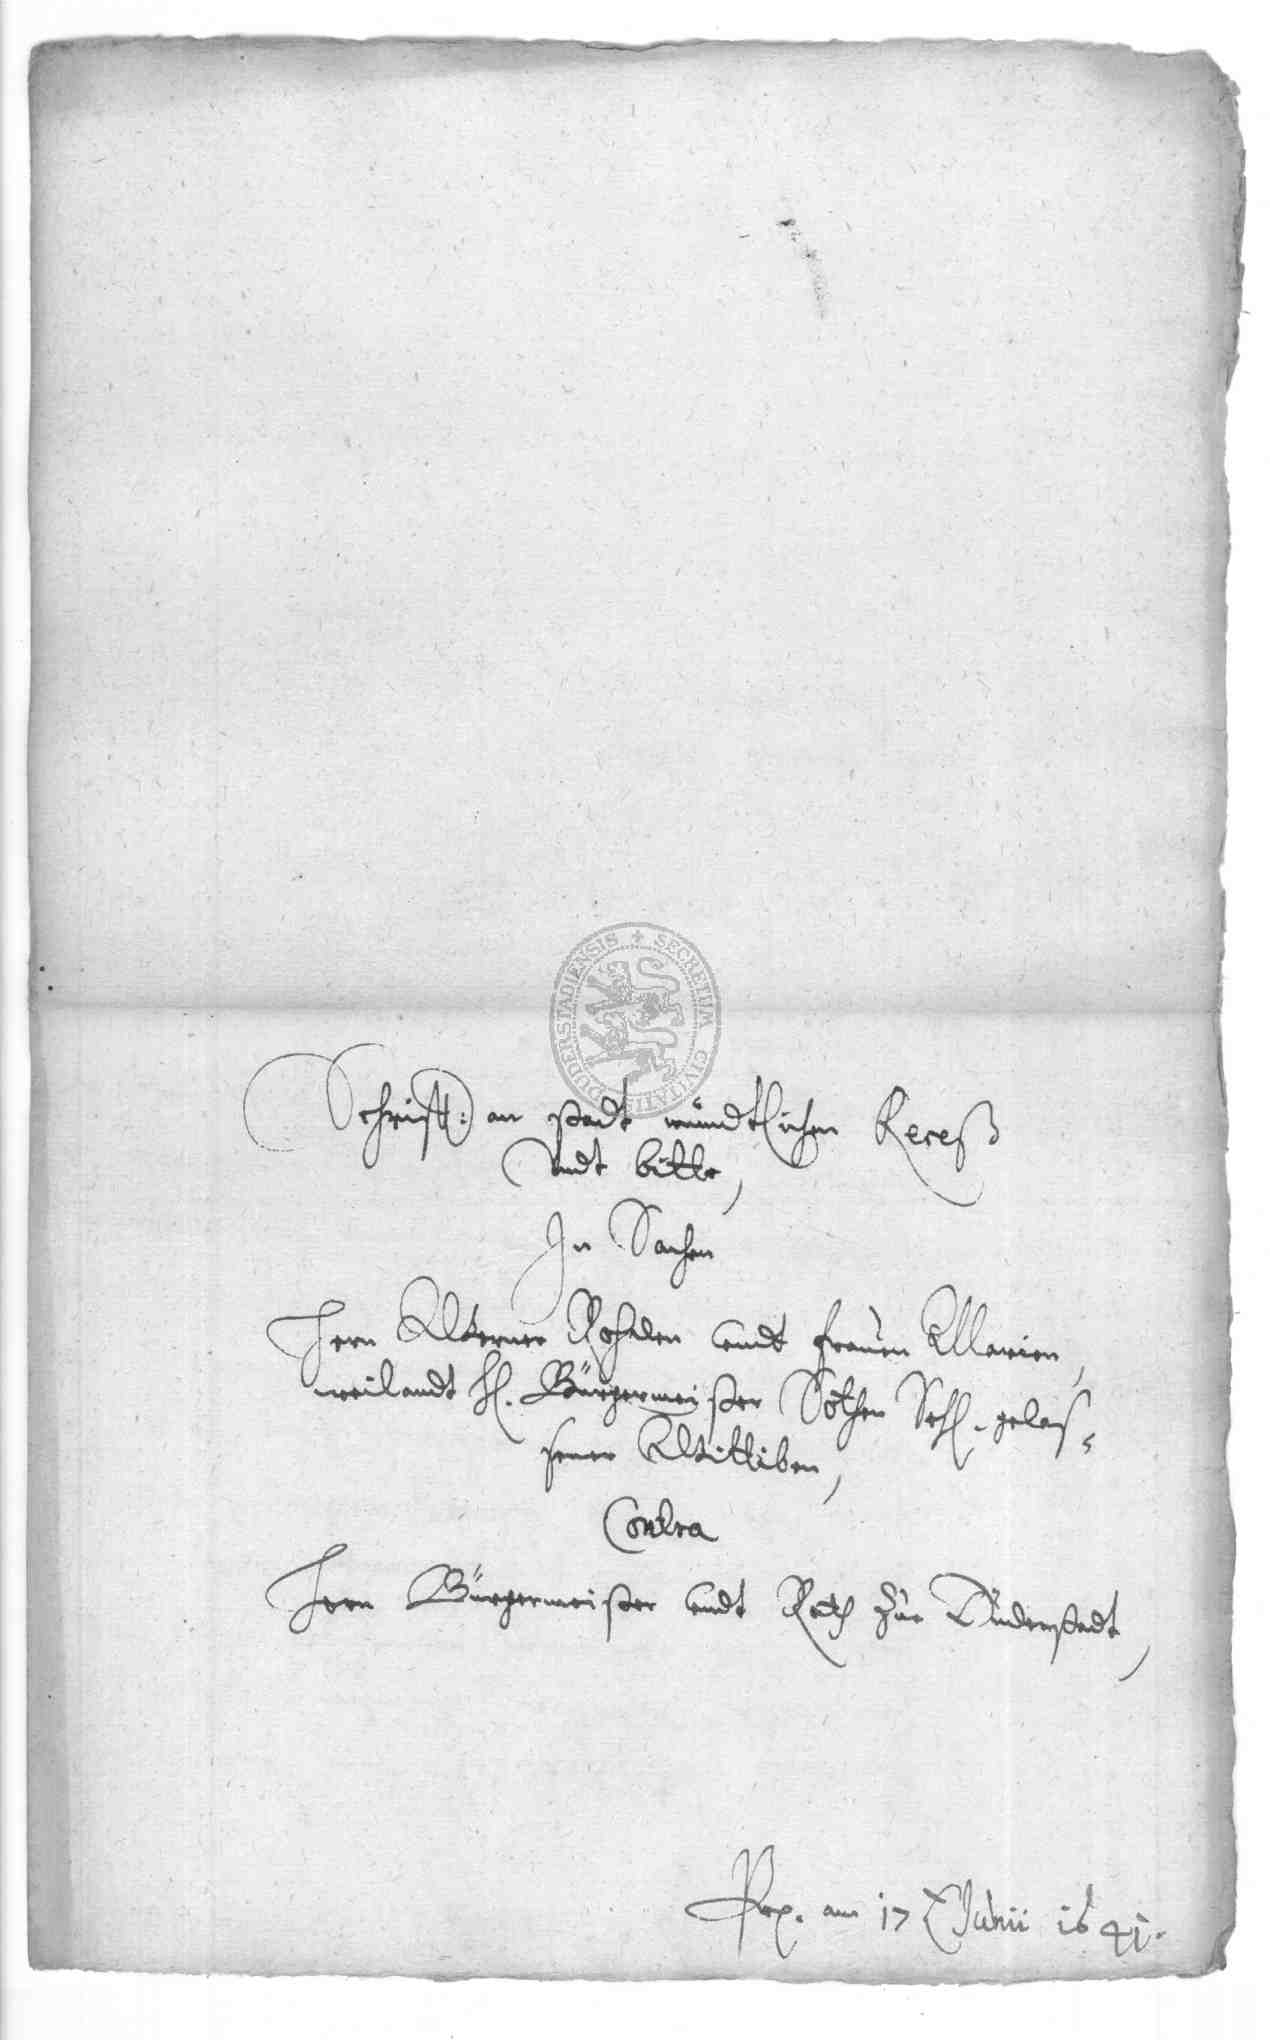 SECRETUM CIVITATIS DUDERSTADIENSIS
Schrifft: an stadt mündtlichen Receß
undt bitte,
In Sachen
Herrn Werner Rohden undt frauen Marien,
weilandt H. Bürgermeister Söthen Sehl. gelaß-
sener Wittiben,
Contra
Herrn Bürgermeister undt Rath Zue Duderstadt,
am 17 Junii 1641.